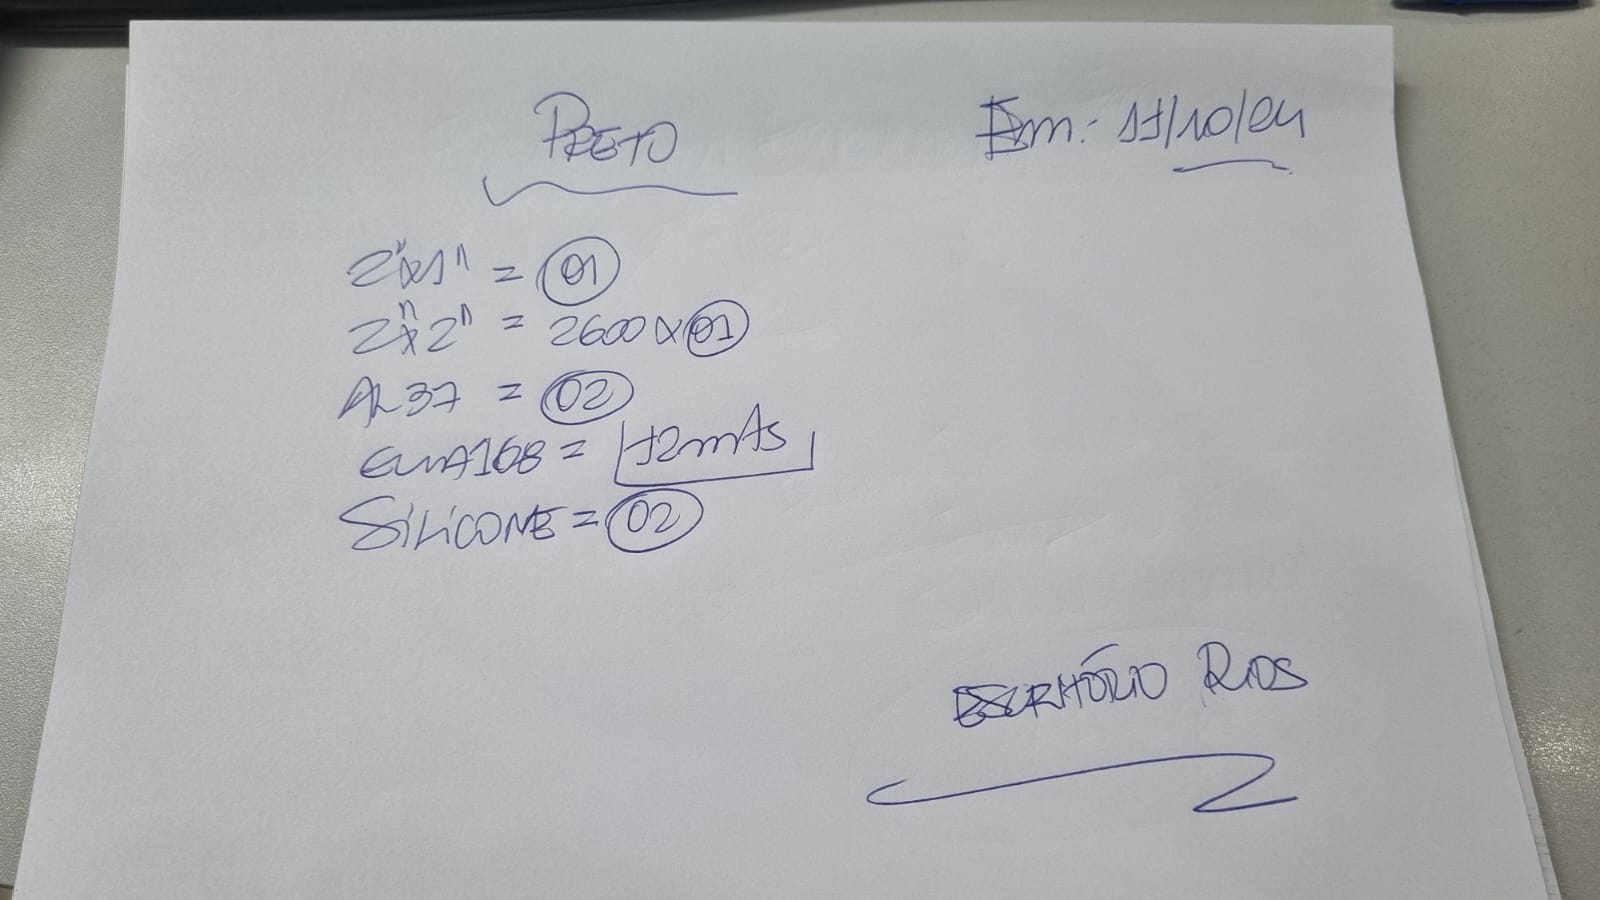 PRETO
Em: 17/10/24
2"x1" = 01
2"x2" = 2600 x 01
AL37 = 02
GUA168 = 12mts
SILICONE = 02
ESCRITÓRIO RIOS